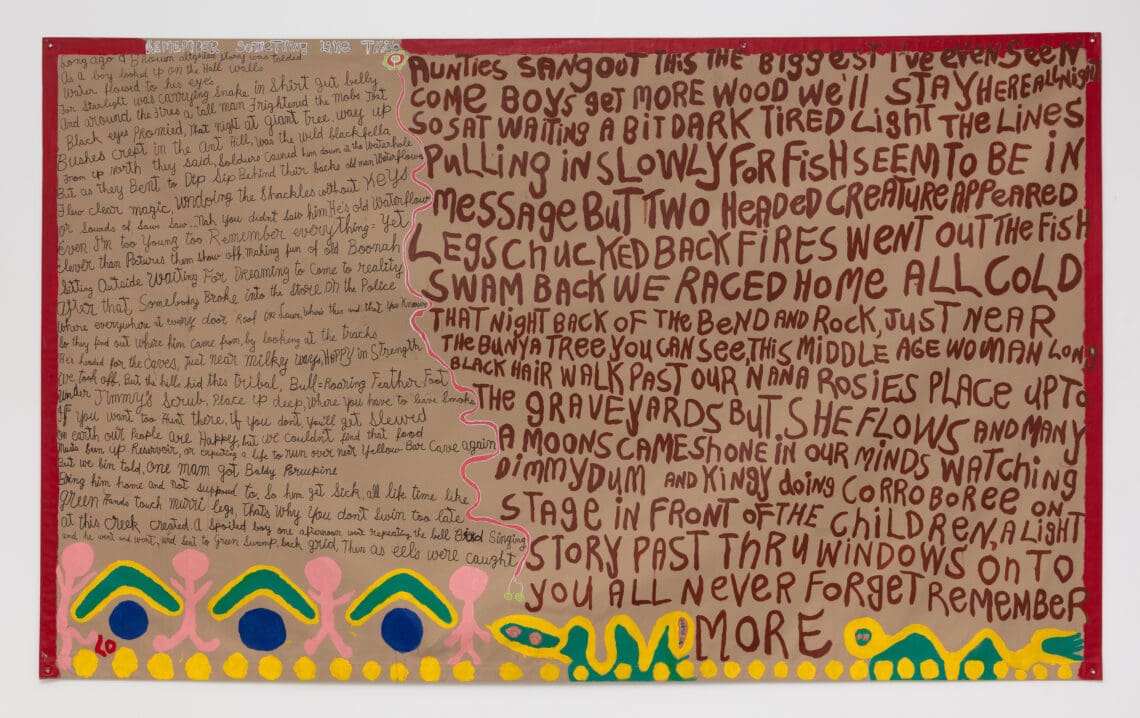 REMEMBER SOMETHING LIKE THIS
Long ago a Brown alighted story was tolded
As a boy looked up on the Hall walls
Water flowed to his eyes
For Starlight was carrying Snake in Shirt gut belly
And around the Fires a tall man Frightened the mobs
Black eyes Promised, That night at giant tree, way up
Bushes crept in the Ant Hill, Was the wild blackfella
From up north they said, Soldiers Cained him down at the Waterhole
But as they Bent to Dip Sip Behind their backs old man Waterflows
Flew clear magic, undoing the Shackles without Keys
or Sounds of Saws Saw... Nah you didnt Saw him He's old Waterflow
Even I'm too Young too Remember everything = Yet
Clever than Pictures them Show off, making fun of old Boonah
Sitting Outside Waiting For Dreaming to Come to reality
After that Somebody Broke into the Store on the Police
Where everywhere at every door Roof
So they find out Where him Came from, by looking at the tracks
He's headed for the Caves, Just near Milky ways, Happy in Strength
We took off, But the hills hid this tribal, Bull=Roaring Feather Foot
Under Jimmy's Scrub, Place up deep, Where You have to leave Smoke
If You want too Hunt there, if You don't, you'll get Slewed
on earth our People are Happy, but we couldn't find that food
Musta been up Reservoir, or capturing a life to run over near Yellow Bar Cave again
But we bin told, one man got Baldy Porcupine
Bring him home and Not supposed to, So him get Sick, all life time like
green Hands touch murri legs, thats why You don't Swim too late
at this Creek created A Spoiled boy one afternoon went repeating the bell Bird Singing
and he went and went, and sent to Green Swamp, back grid, Then as eels were caught
AUNTIES SANG OUT THIS THE BIGGEST I'VE EVEN SEEN
COME BOYS get MORE WOOD We'll STAY HERE ALL NIGHT
SO SAT WAITING A BIT DARK TIRED LIGHT THE LINES
PULLING IN SLOWLY FOR FISH SEEM TO BE IN
MESSAGE BUT TWO HEADED CREATURE APPEARED
LEGS CHUCKED BACK FIRES WENT OUT THE FISH
SWAM BACK WE RACED HOME ALL COLD
THAT NIGHT BACK OF THE BEND AND ROCK, JUST NEAR
THE BUNYA TREE YOU CAN SEE, THIS MIDDLE AGE WOMAN LONG
BLACK HAIR WALK PAST OUR NANA ROSIES PLACE UP TO
THE GRAVEYARDS BUT SHE FLOWS AND MANY
A MOONS CAME SHONE IN OUR MINDS WATCHING
DIMMYDUM AND KINGY doing CORROBOREE ON
STAGE IN FRONT OF THE CHILDREN, A LIGHT
STORY PAST THRU WINDOWS ONTO
YOU ALL NEVER FORGET REMEMBER
MORE
LO